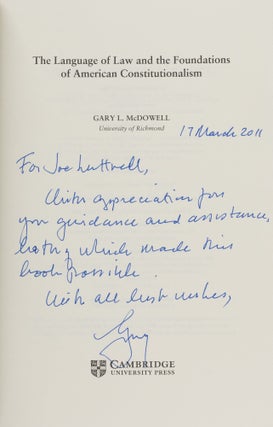 The Language of Law and the Foundations
of American Constitutionalism
GARY L. McDOWELL
University of Richmond
17 March 2011
For Joe Luttrell,
With appreciation for
your guidance and assistance,
both of which made this
book possible.
With all best wishes,
Gary
CAMBRIDGE
UNIVERSITY PRESS